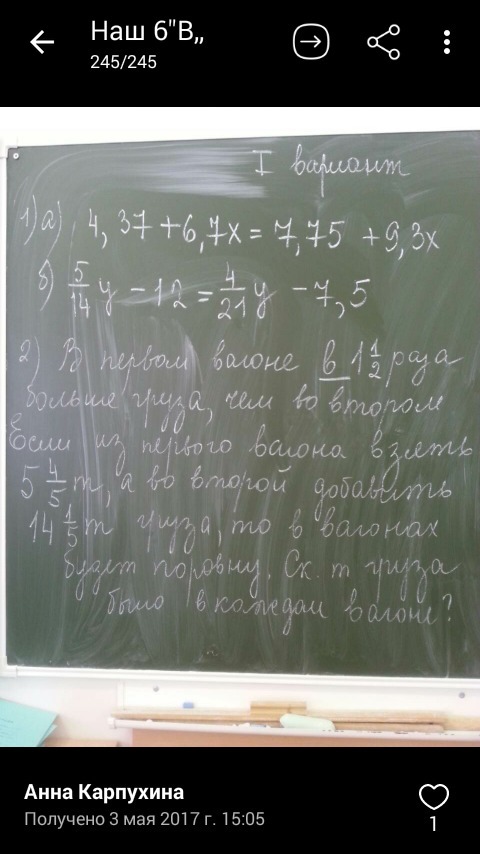 Наш 6"В„
245/245
I вариант
1) а) 4,37 + 6,7x = 7,75 + 9,3x
б) 5/14 y - 12 = 4/21 y - 7,5
2) В первом вагоне в 1 1/2 раза
больше груза, чем во втором
Если из первого вагона взять
5 4/5 т, а во второй добавить
14 1/5 т груза, то в вагонах
будет поровну. Ск. т груза
было в каждом вагоне?
Анна Карпухина
Получено 3 мая 2017 г. 15:05
1